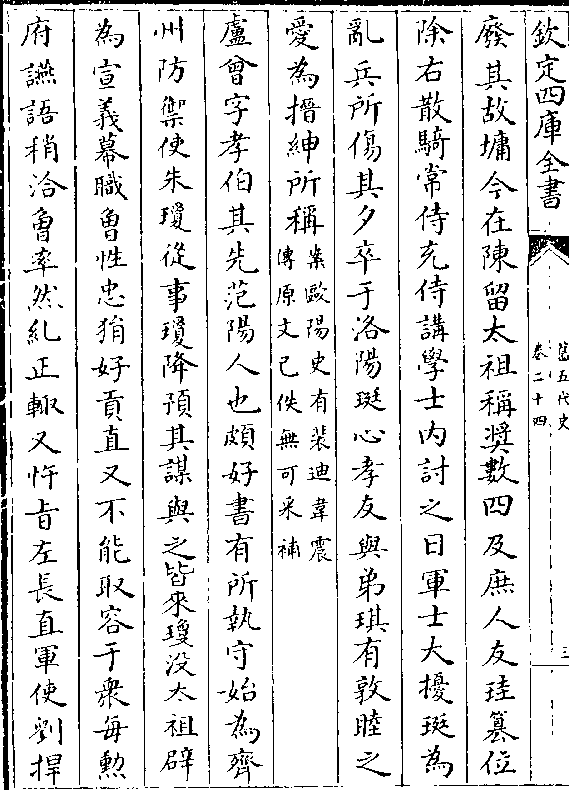 欽定四庫全書
舊五代史
卷二十四
三
廢其故墉今在陳留太祖稱奬數四及庶人友珪簒位
除右散騎常侍充侍講學士内討之日軍士大擾珽為
亂兵所傷其夕卒于洛陽珽心孝友與弟琪有敦睦之
愛為搢紳所稱案歐陽史有裴迪韋震
傳原文已佚無可采補
盧曾字孝伯其先范陽人也頗好書有所執守始為齊
州防禦使朱瓊從事瓊降預其謀與之皆來瓊没太祖辟
為宣義幕職魯性忠狷好貢直又不能取容于衆每勲
府讌語稍洽魯率然糺正輙又忤旨左長直軍使劉捍